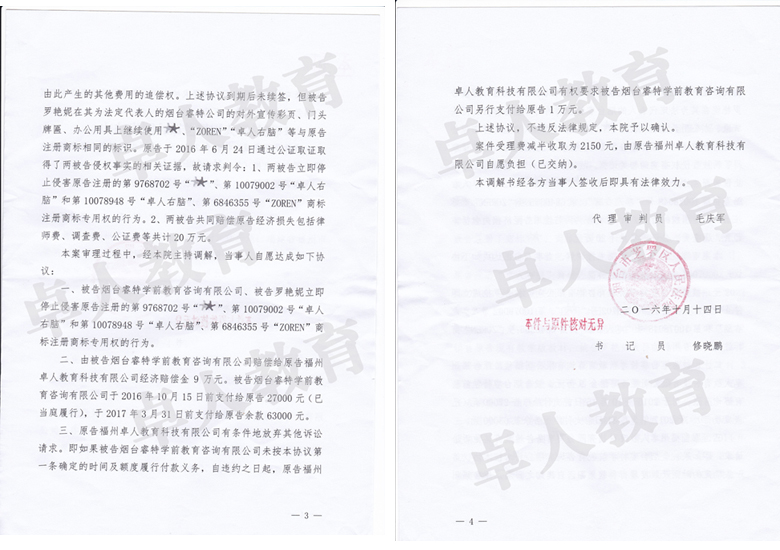 由此产生的其他费用的追偿权。上述协议到期后未续签，但被告
罗艳妮在其为法定代表人的烟台睿特公司的对外宣传彩页、门头
牌匾、办公用具上继续使用“ ”、“ZOREN”“卓人右脑”等与原告
注册商标相同的标识。原告于 2016 年 6 月 24 日通过公证取证取
得了两被告侵权事实的相关证据，故请求判令：1、两被告立即停
止侵害原告注册的第 9768702 号“ ”、第 10079002 号“卓人右
脑”和第 10078948 号“卓人右脑”、第 6846355 号“ZOREN”商标
注册商标专用权的行为。2、两被告共同赔偿原告经济损失包括律
师费、调查费、公证费等共计 20 万元。
本案审理过程中，经本院主持调解，当事人自愿达成如下协
议：
一、被告烟台睿特学前教育咨询有限公司、被告罗艳妮立即
停止侵害原告注册的第 9768702 号“ ”、第 10079002 号“卓人
右脑”和第 10078948 号“卓人右脑”、第 6846355 号“ZOREN”商
标注册商标专用权的行为。
二、由被告烟台睿特学前教育咨询有限公司赔偿给原告福州
卓人教育科技有限公司经济赔偿金 9 万元。被告烟台睿特学前教
育咨询有限公司于 2016 年 10 月 15 日前支付给原告 27000 元（已
当庭履行），于 2017 年 3 月 31 日前支付给原告余款 63000 元。
三、原告福州卓人教育科技有限公司有条件地放弃其他诉讼
请求。即如果被告烟台睿特学前教育咨询有限公司未按本协议第
一条确定的时间及额度履行付款义务，自违约之日起，原告福州
— 3 —
卓人教育
卓人教育
卓人教育
卓人教育科技有限公司有权要求被告烟台睿特学前教育咨询有限
公司另行支付给原告 1 万元。
上述协议，不违反法律规定，本院予以确认。
案件受理费减半收取为 2150 元，由原告福州卓人教育科技有
限公司自愿负担（已交纳）。
本调解书经各方当事人签收后即具有法律效力。
代 理 审 判 员 毛庆军
烟台市芝罘区人民法院
二〇一六年十月十四日
本件与原件核对无异
书 记 员 修晓鹏
— 4 —
卓人教育
卓人教育
卓人教育